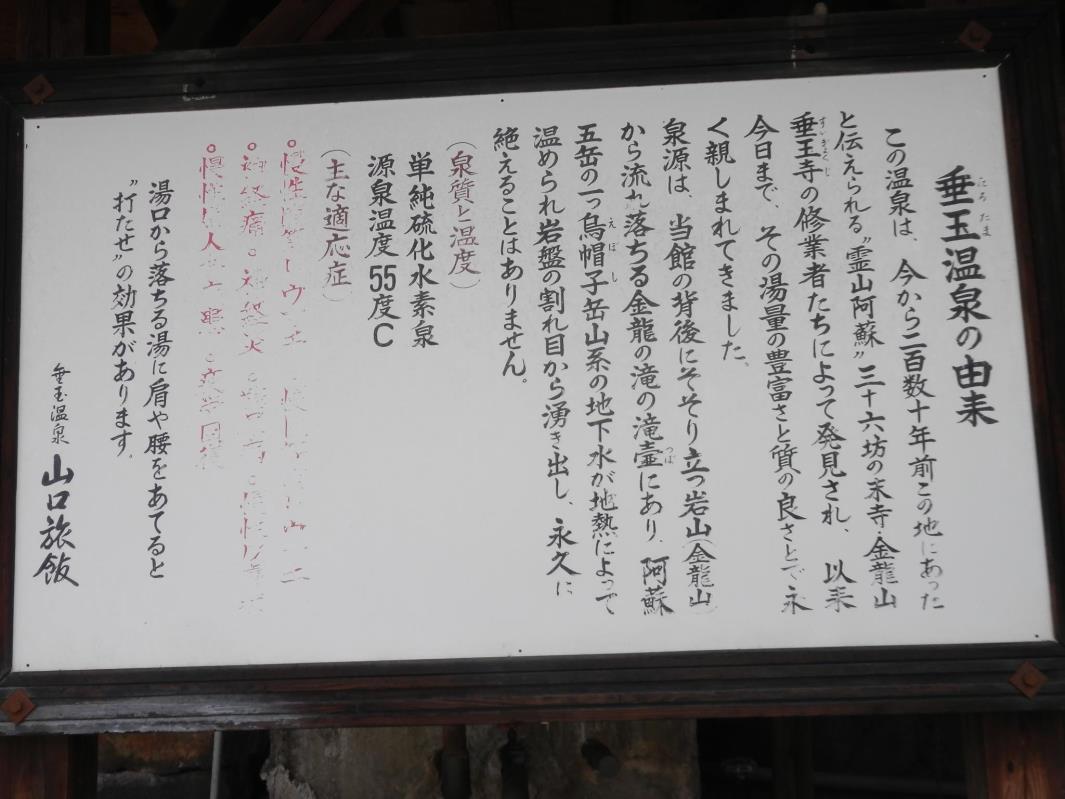 垂玉温泉の由来
この温泉は、今から二百数十年前この地にあった
と伝えられる"霊山阿蘇"三十六坊の末寺・金龍山
垂玉寺の修業者たちによって発見され、以来
今日まで、その湯量の豊富さと質の良さとで永
く親しまれてきました。
泉源は、当館の背後にそそり立つ岩山(金龍山)
から流れ落ちる金龍の滝の滝壷にあり、阿蘇
五岳の一つ烏帽子岳山系の地下水が地熱によって
温められ岩盤の割れ目から湧き出し、永久に
絶えることはありません。
(泉質と温度)
単純硫化水素泉
源泉温度55度C
(主な適応症)
慢性
神経痛
湯口から落ちる湯に肩や腰をあてると
"打たせ"の効果があります。
垂玉温泉 山口旅飯